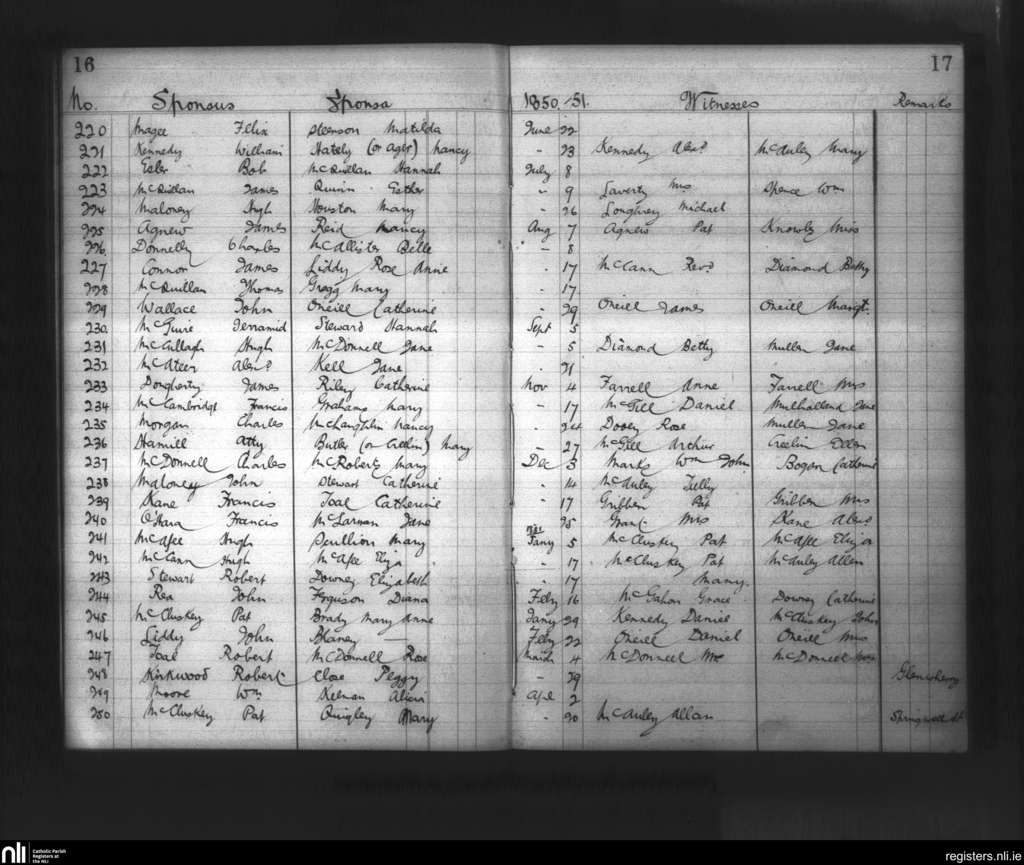 16
17
No. Sponsus Sponsa 1850.-51. Witnesses Remarks
220 Magee Felix Steenson Matilda June 22
221 Kennedy William Hately (or Ager) Nancy " 23 Kennedy Alexr McAuley Mary
222 Esler Bob McQuillan Hannah July 8
223 McQuillan James Quinn Esther " 9 Laverty Mrs Spence Wm
224 Maloney Hugh Houston Mary " 26 Michael
225 Agnew James Reid Nancy Aug 7 Agnew Pat Knowles Miss
226. Donnelly Charles McAllister Belle - 8
227 Connor James Liddy Rose Anne " 17 McCann Revd Diamond Betty
228 McQuillan Thomas Gregg Mary " 17
229 Wallace John Oneill Catherine " 29 Oneill James Oneill Margt.
230. McGuire Jerramid Steward Hannah Sept 5
231 McCullagh Hugh McDonnell Jane - 5 Diamond Betty Mullen Jane
232 McAteer Alexr Kell Jane . 21
233 Dougherty James Riley Catherine Nov 4 Farrell Anne Farrell Mrs
234 McCambridge Francis Grahams Mary - 17 McGill Daniel Mulholland Jane
235 Morgan Charles McLaughlin Nancy . 24 Dooey Rose Mullen Jane
236 Hamill Atty Butler (or Crelin) Mary - 27 McGill Arthur Crelin Ellen
237 McDonnell Charles McRoberts Mary Dec 3 Marks Wm John Bogan Catherine
238 Maloney John Stewart Catherine " 14 McAuley
239 Kane Francis Toal Catherine - 17 Gribben Pat Gribben Mrs
240 O'Hara Francis McLarnon Jane " 25 Grant Mrs Kane Alexr
241 McAfee Hugh Scullion Mary 1851 Jany 5 McCluskey Pat McAfee Eliza
242 McCann Hugh McAfee Eliza - 17 McCluskey Pat McAuley Allen
243 Stewart Robert Downey Elizabeth - 17 Mary
244 Rea John Ferguson Diana Feby 16 McGahon Grace Downey Catherine
245 McCluskey Pat Brady Mary Anne Jany 29 Kennedy Daniel McCluskey John
246 Liddy John Blaney — Feby 22 Oneill Daniel Oneill Mrs
247 Toal Robert McDonnell Rose March 4 McDonnell Mr McDonnell Mrs
248 Kirkwood Robert Close Peggy - 29
249 Moore Wm Keenan Alicia Apl 2
250 McCluskey Pat Quigley Mary . 20 McAuley Allan Springwell St
nli
Catholic Parish
Registers at
the NLI
registers.nli.ie